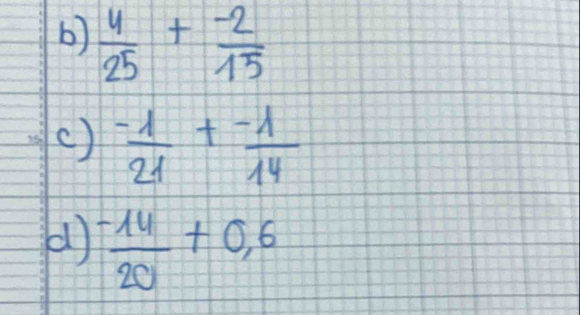 b) 4/25 + -2/15
c) -1/21 + -1/14
d) -14/20 + 0,6